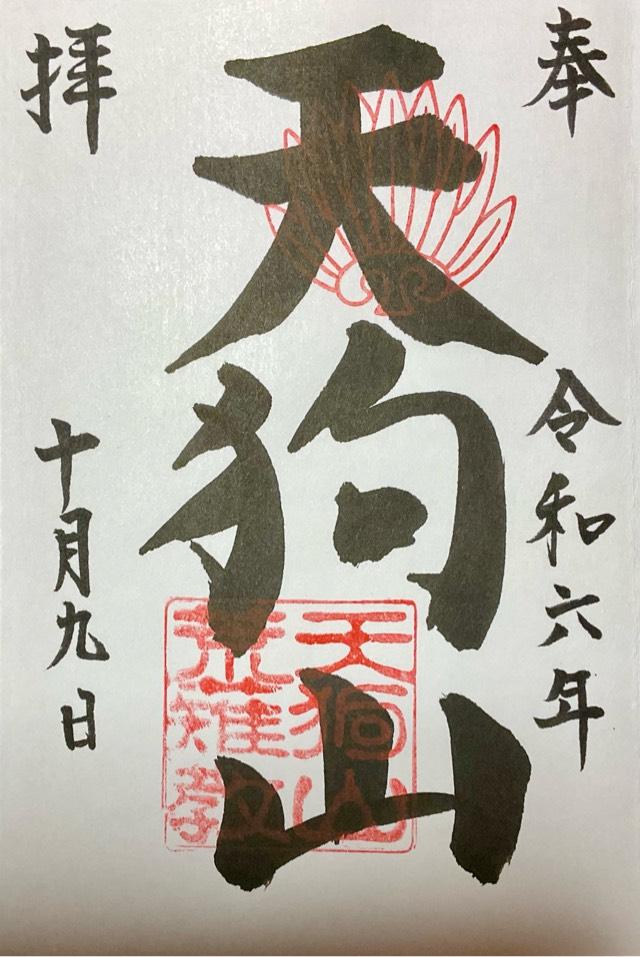 奉
令和六年
天狗山
天狗山
拝
十月九日